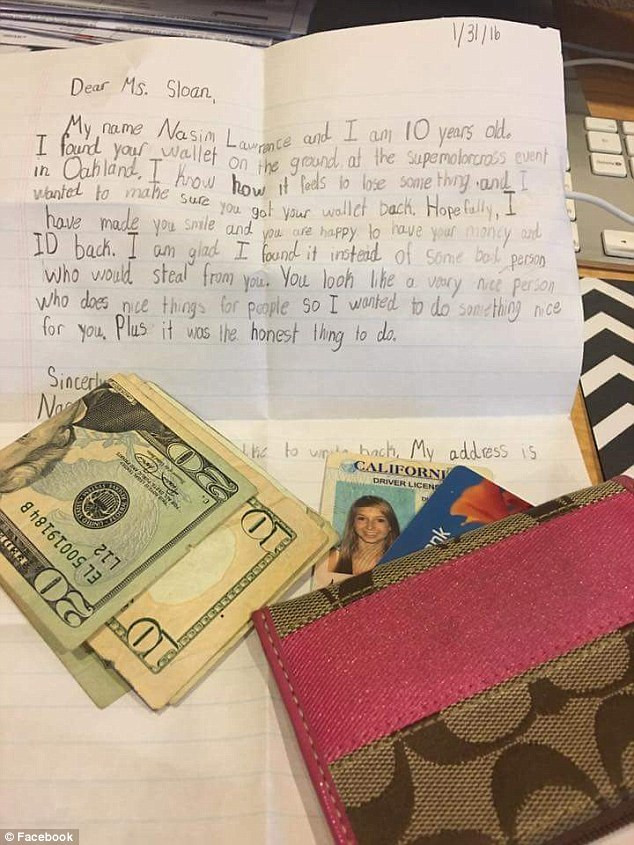 1/31/16
Dear Ms. Sloan,
My name Nasim Lawrence and I am 10 years old.
I found your wallet on the ground, at the supermotorcross event
in Oakland. I know how it feels to lose something and I
wanted to make sure you got your wallet back. Hopefully, I
have made you smile and you are happy to have your money and
ID back. I am glad I found it instead of some bad person
who would steal from you. You look like a vary nice person
who does nice things for people so I wanted to do something nice
for you. Plus it was the honest thing to do.
Sincerly
Nas
like to write back. My address is
20
EL50019184B
L12
20
10
10
CALIFORNI
DRIVER LICEN
nk
© Facebook